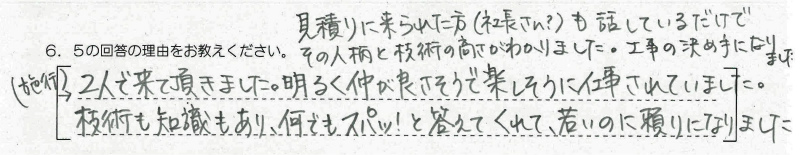 見積りに来られた方(社長さん?)も話しているだけで
6. 5の回答の理由をお教えください。その人柄と技術の高さがわかりました。工事の決め手になりました
(施行)→2人で来て頂きました。明るく仲が良さそうで楽しそうに仕事されていました。
技術も知識もあり、何でもスパッ!と答えてくれて、若いのに頼りになりました